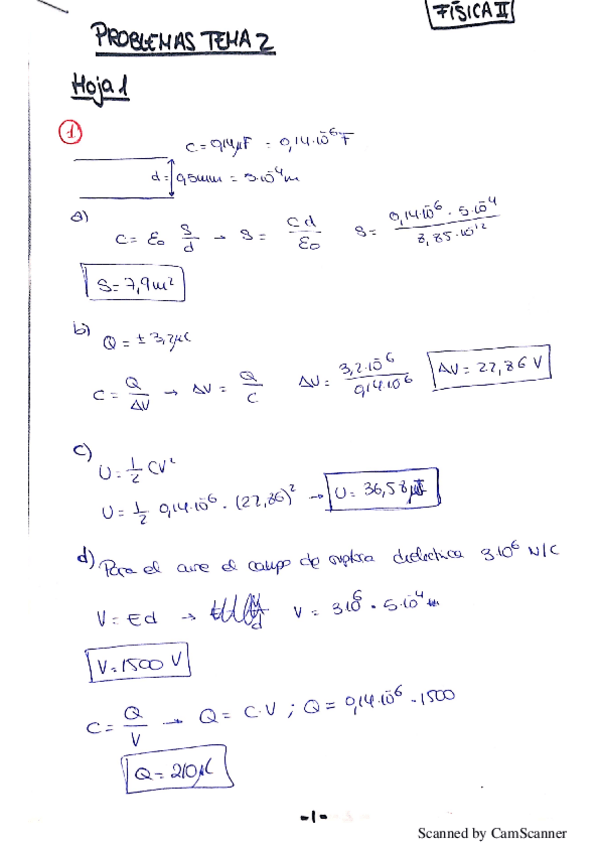 FÍSICA II
PROBLEMAS TEMA 2
Hoja 1
1
C = 0,14 μF = 0,14·10⁻⁶ F
d = 0,5mm = 5·10⁻⁴ m
a)
C = ε₀ S/d → S = C d/ε₀ S = 0,14·10⁻⁶ · 5·10⁻⁴ / 8,85·10⁻¹²
S = 7,9 m²
b)
Q = ± 3,2 μC
C = Q/ΔV → ΔV = Q/C ΔV = 3,2·10⁻⁶ / 0,14·10⁻⁶ ΔV = 22,86 V
c)
U = 1/2 CV²
U = 1/2 0,14·10⁻⁶ · (22,86)² → U = 36,58 μJ
d) Para el aire el campo de ruptura dieléctrica 3·10⁶ N/C
V = Ed → V = 3·10⁶ · 5·10⁻⁴
V = 1500 V
C = Q/V → Q = C·V ; Q = 0,14·10⁻⁶ · 1500
Q = 210 μC
-1-
Scanned by CamScanner